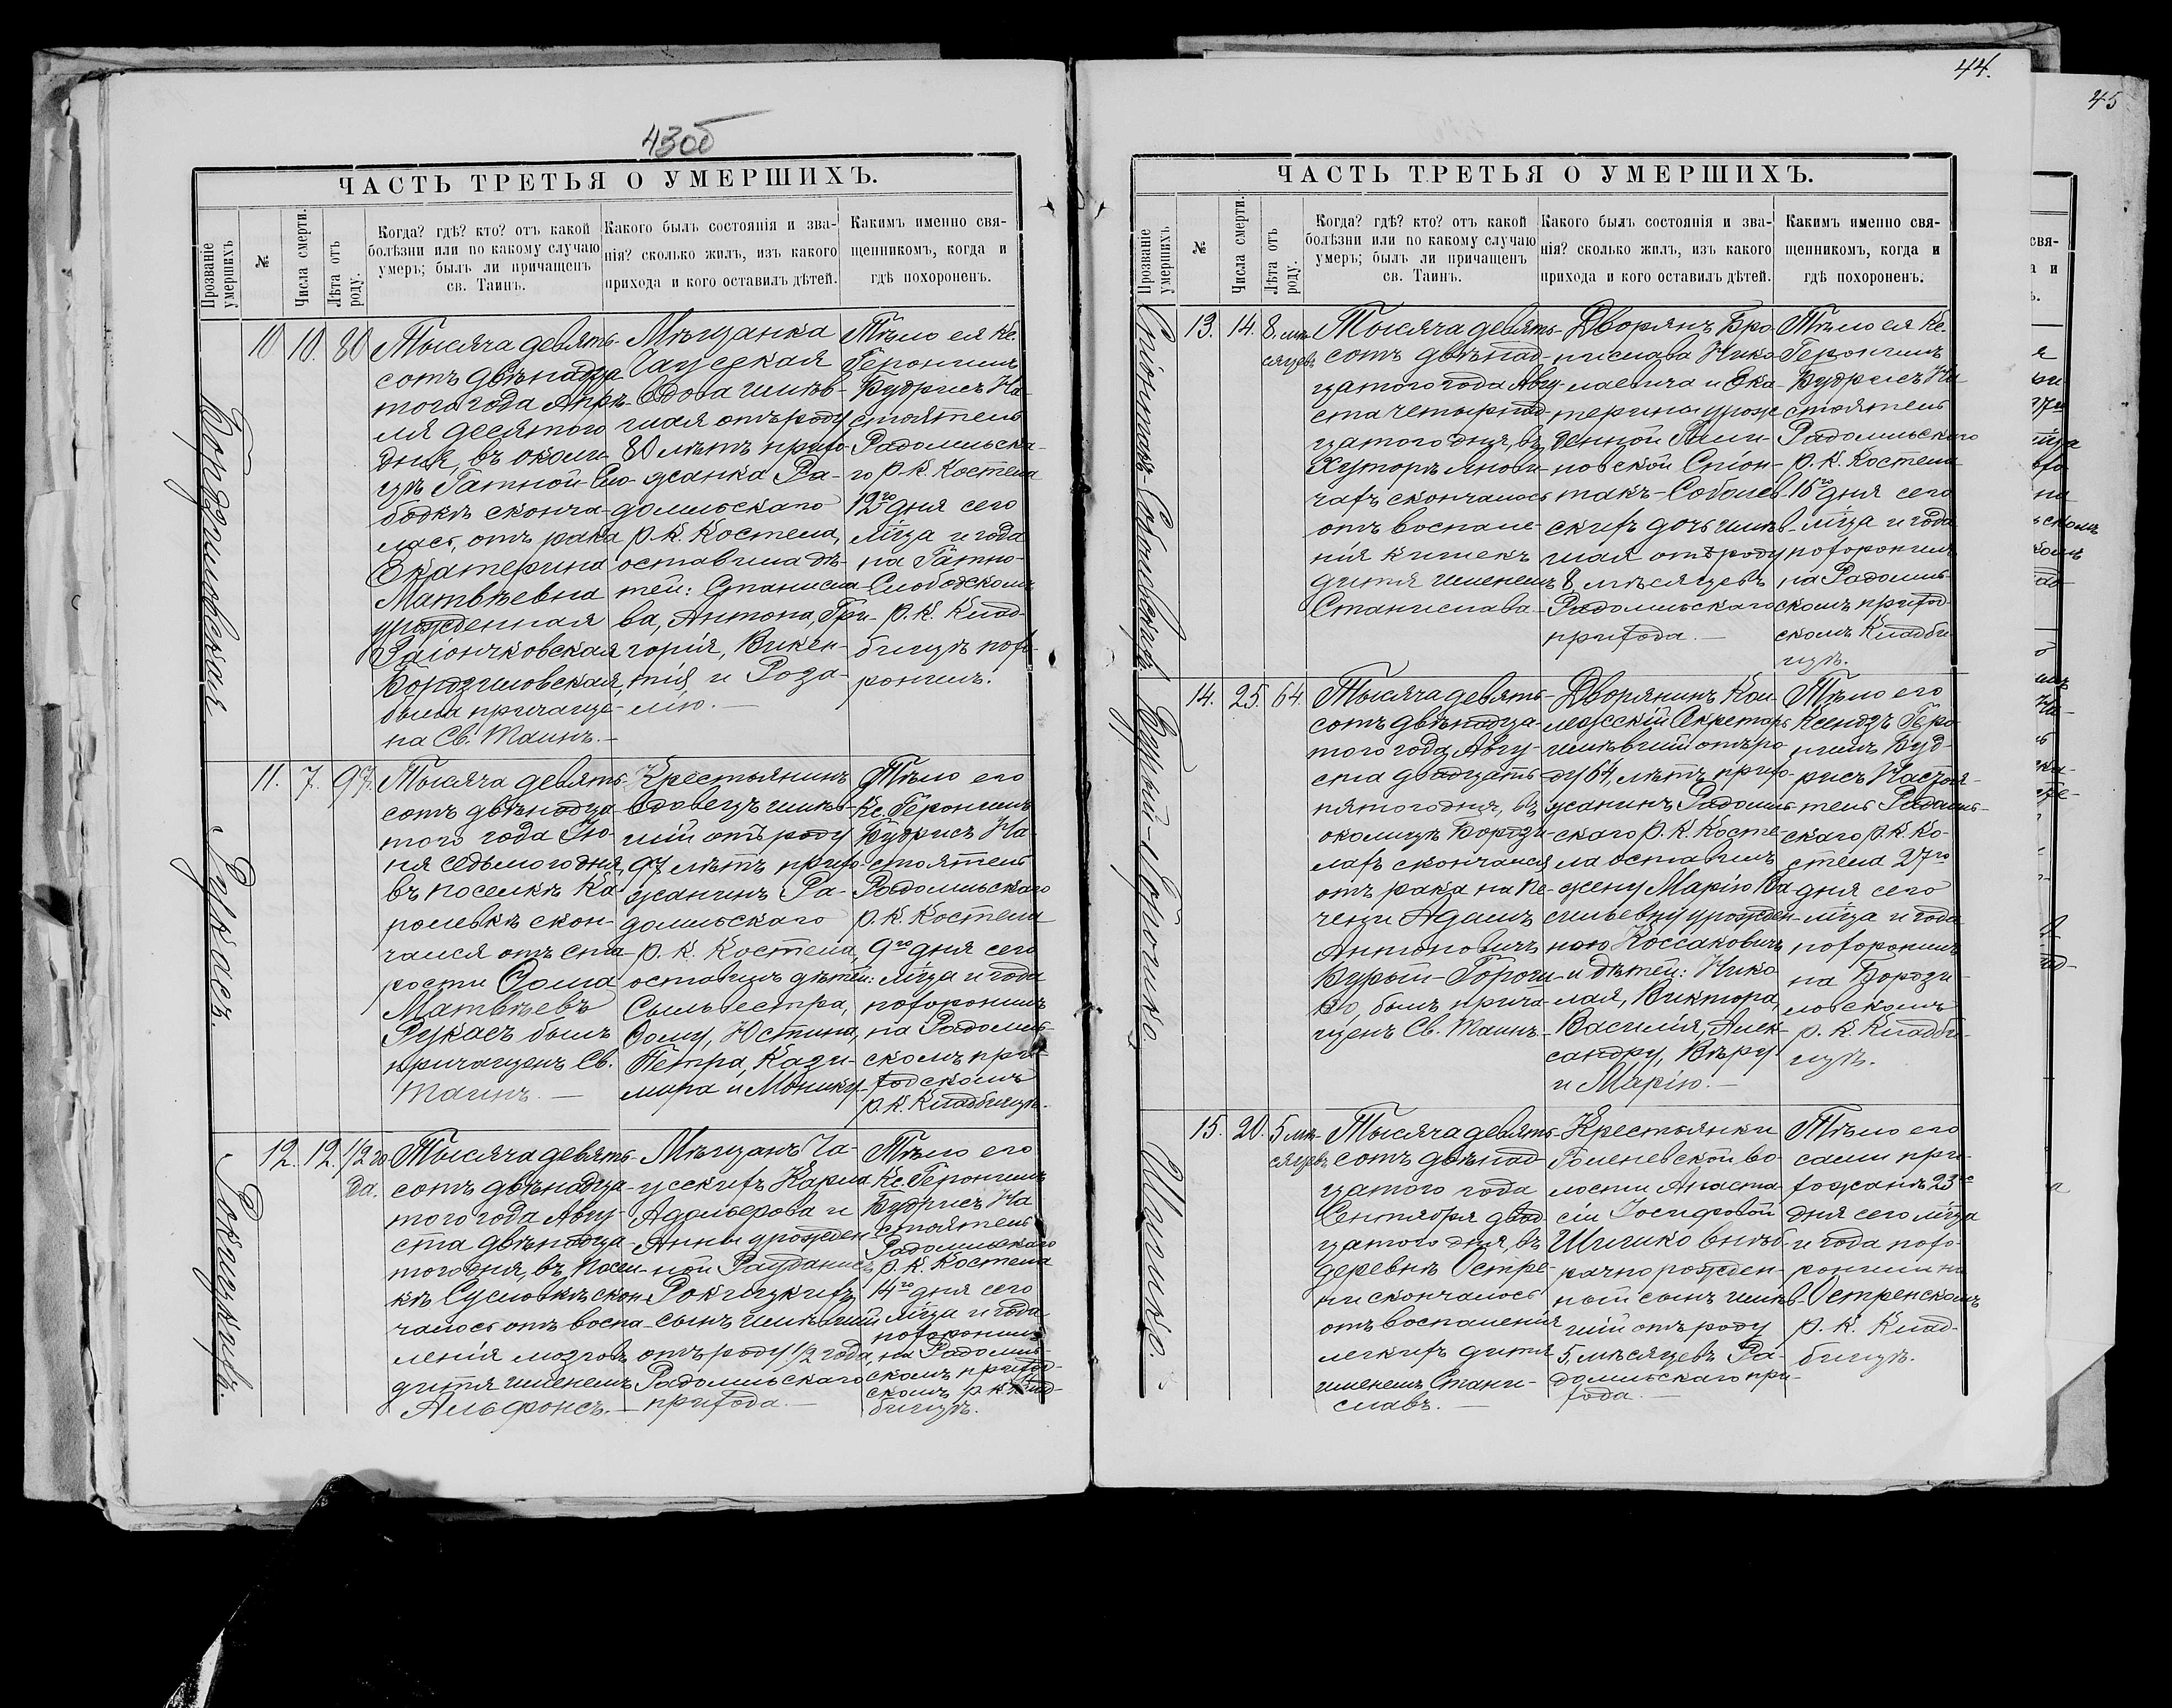 43об
ЧАСТЬ ТРЕТЬЯ О УМЕРШИХЪ.
Прозваніе умершихъ
№
Числа смерти.
Лѣта отъ роду.
Когда? гдѣ? кто? отъ какой
болѣзни или по какому случаю
умеръ; былъ ли причащенъ
св. Таинъ.
Какого былъ состоянія и зва-
нія? сколько жилъ, изъ какого
прихода и кого оставилъ дѣтей.
Какимъ именно свя-
щенникомъ, когда и
гдѣ похороненъ.
Бордзиловская
10
10.
80
Тысяча девять-
сотъ двѣнадца
того года Апрѣ-
ля десятого
дня, въ околи-
цѣ Гатной-Сло-
бодкѣ сконча
лась, отъ рака
Екатерина
Матвѣевна
урожденная
Заіончковская
Бордзиловская,
была причаще-
на Св. Таинъ.-
Мѣщанка
Чаусская
Вдова имѣв-
шая отъ роду
80 лѣтъ прихо-
жанка Ра-
домльскаго
р. К. Костела,
оставила дѣ-
тей: Станисла-
ва, Антона, Гри-
горія, Викен-
тія, и Роза-
лію.-
Тѣло ея Кс.
Геронимъ
Будрисъ На-
стоятель
Радомльска-
го р. К. Костела
12го дня сего
мѣца и года
на Гатно-
Слободскомъ
р. К. Клад-
бищѣ похо-
ронилъ.
Рукасъ.
11.
7.
97.
Тысяча девять-
сотъ двѣнадца-
того года Ію-
ня седьмого дня,
въ поселкѣ Ка-
ролькѣ скон-
чался отъ ста-
рости Ѳома
Матвѣевъ
Рукасъ былъ
причащенъ Св.
Таинъ.-
Крестьянинъ
вдовецъ имѣв-
шій отъ роду
97 лѣтъ прихо-
жанинъ Ра-
домльскаго
р. К. Костела,
оставилъ дѣтей:
Сыльвестра,
Ѳому, Юстина,
Петра, Кази-
мира и Монику.-
Тѣло его
Кс. Геронимъ
Будрисъ На-
стоятель
Радомльскаго
р. К. Костела
9го дня сего
мѣца и года
похоронилъ
на Радомль-
скомъ при-
ходскомъ
р. К. Кладбищѣ.
Рокицкихъ.
12.
12.
1/2 го
да.
Тысяча девять-
сотъ двѣнадца-
того года Авгу-
ста двѣнадца-
того дня, въ посел-
кѣ Сусловкѣ скон-
чалось отъ воспа-
ленія мозговъ
дитя именемъ
Альфонсъ.-
Мѣщанъ Ча-
усскихъ Карла-
Адольфова и
Анны урожден-
ной
Рокицкихъ
сынъ имѣвшій
отъ роду 1/2 года,
Радомльскаго
прихода.-
Тѣло его
Кс. Геронимъ
Будрисъ На
стоятель
Радомльскаго
р. К. Костела
14го дня сего
мѣца и года
похоронилъ
на Радомль-
скомъ приход-
скомъ р. К. Клад-
бищѣ.
44.
ЧАСТЬ ТРЕТЬЯ О УМЕРШИХЪ.
Прозваніе умершихъ
№
Числа смерти.
Лѣта отъ роду.
Когда? гдѣ? кто? отъ какой
болѣзни или по какому случаю
умеръ; былъ ли причащенъ
св. Таинъ.
Какого былъ состоянія и зва-
нія? сколько жилъ, изъ какого
прихода и кого оставилъ дѣтей.
Какимъ именно свя-
щенникомъ, когда и
гдѣ похороненъ.
Спіонтакъ-Соболевскихъ
13.
14.
8. мѣ-
сяцевъ
Тысяча девять-
сотъ двѣнад-
цатого года Авгу-
ста четырнад-
цатого дня, въ
Хуторѣ Янови-
чахъ скончалось
отъ воспале-
нія кишекъ
дитя именемъ
Станислава-
Дворянъ Бро-
нислава Нико-
лаевича и Ека-
терины урож-
денной
Спіон-
такъ-Соболев-
скихъ дочь имѣв-
шая отъ роду
8 мѣсяцевъ
Радомльскаго
прихода.-
Тѣло ея Кс.
Геронимъ
Будрисъ На-
стоятель
Радомльскаго
р. К. Костела
16го дня сего
мѣца и года
похоронилъ
на Радомль-
скомъ приход-
скомъ Кладби-
щѣ.
Бурый-Горошко.
14.
25.
64.
Тысяча девять-
сотъ двѣнадца-
того года Авгу-
ста двадцать
пятого дня, въ
околицѣ Бордзи-
лахъ скончался
отъ рака на пе-
чени Адамъ
Антоновичъ
Бурый-Горош-
ко, былъ прича-
щенъ Св. Таинъ.-
Дворянинъ Кол-
лежскій Секретарь
имѣвшій отъ ро
ду 64, лѣтъ прихо-
жанинъ Радомль-
скаго р. К. Косте-
ла оставилъ
жену Марію Ва-
сильевну урожден-
ною Коссаковичъ
и дѣтей: Нико
лая, Виктора,
Василія, Алек-
сандру, Вѣру
и Марію.-
Тѣло его
Ксендзъ Геро-
нимъ Буд-
рисъ Настоя-
тель Радомль-
скаго р. К. Ко-
стела 27го
дня сего
мѣца и года
похоронилъ
на Бордзи-
ловскомъ
р. К. Кладби-
щѣ.
Шишко.
15.
20.
5 мѣ-
сяцевъ
Тысяча девять-
сотъ двѣнад-
цатого года
Сентября двад-
цатого дня, въ
деревнѣ Остре-
ни скончалось
отъ воспаленія
легкихъ дитя
именемъ Стани-
славъ.-
Крестьянки
во-
лости Анаста-
сіи Іосифовой
Шишко внѣб-
рачно рожден-
ный сынъ имѣв-
шій отъ роду
5 мѣсяцевъ Ра-
домльскаго при-
хода.-
Тѣло его
сами при-
хожанѣ 23го
дня сего мѣца
и года похо-
ронили на
Остренскомъ
р. К. Клад-
бищѣ.
45